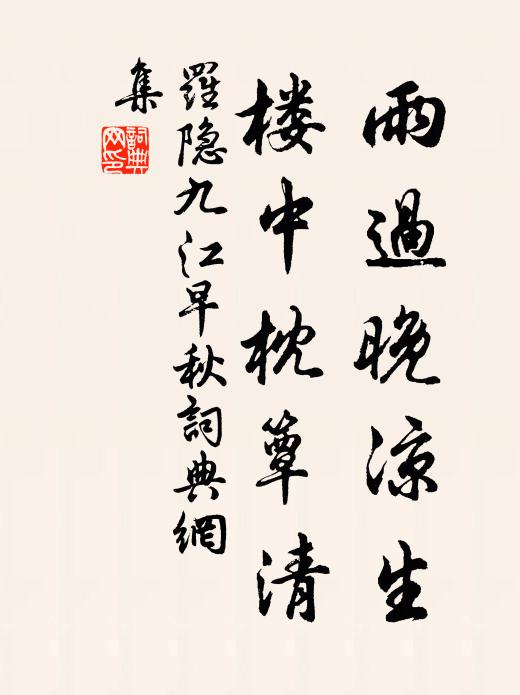 雨過晚涼生
楼中枕簟清
羅隐九江早秋詞典網
集
詞典网印